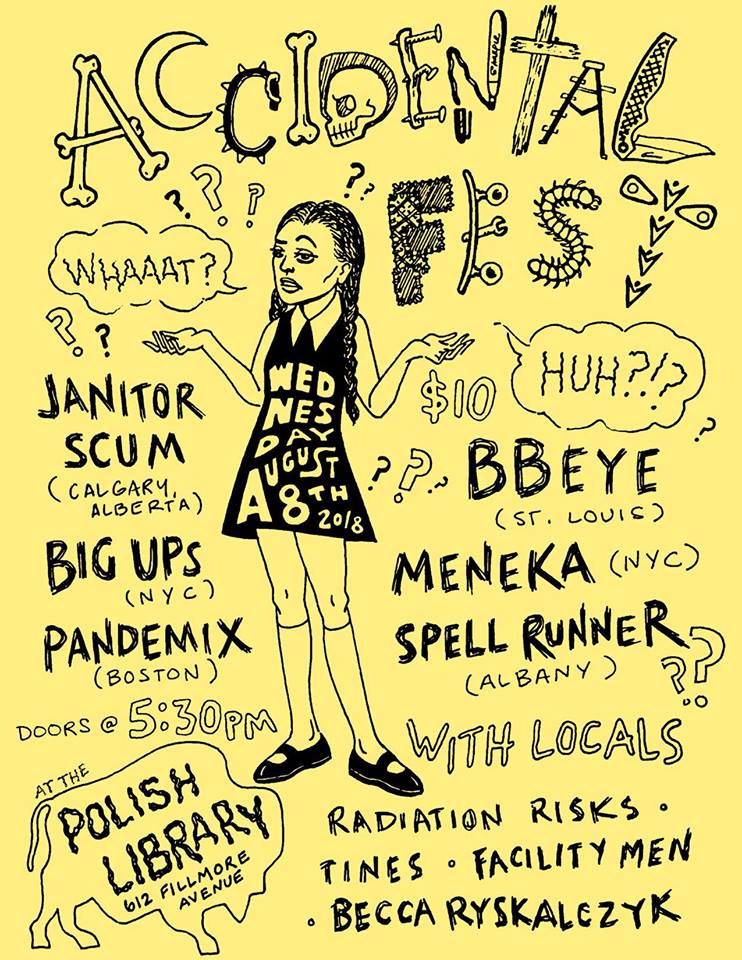 ACCIDENTAL
FEST
? ? ? ? ?
WHAAAT?
? ?
HUH?!?
$10
WED
NES
DAY
AUGUST
8TH
2018
? ? ? ?
JANITOR
SCUM
(CALGARY,
ALBERTA)
BBEYE
(ST. LOUIS)
BIG UPS
(NYC)
MENEKA (NYC)
PANDEMIX
(BOSTON)
SPELL RUNNER
(ALBANY)
??
DOORS @ 5:30PM
WITH LOCALS
AT THE
POLISH
LIBRARY
612 FILLMORE
AVENUE
RADIATION RISKS •
TINES • FACILITY MEN
• BECCA RYSKALCZYK